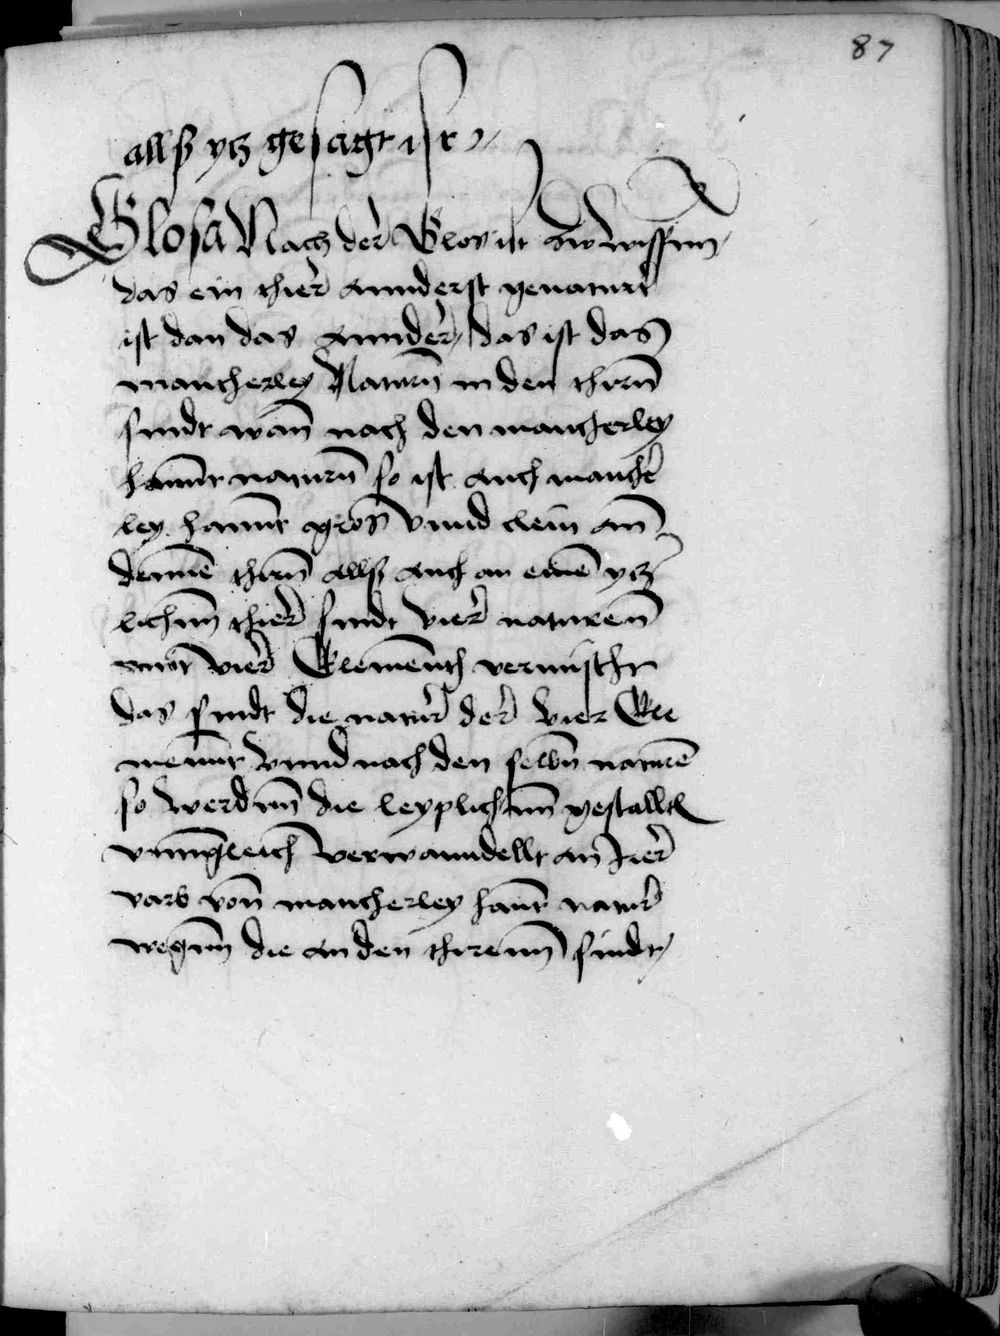 87
allß ytz gesagt ist
Glosa Nach der Glos ist zw wissenn
das ein thier annderst genaturt
ist dan das annder das ist das
mancherley Naturn in den thirn
sindt wan nach den mancherley
hannt naturn so ist auch mancher
ley hannt gros vnnd clein an
denne thirn allß auch an eine ytz
lichenn thier sindt vier naturen
vnnd vier Elementh vermischt
das sindt die natur der vier Ele
mennt vnnd nach den selbn naturen
so werdenn die leyplichenn gestallt
vnngleich verwanndellt an Irer
varb von mancherley hannt natur
wegenn die an den thirenn sindt